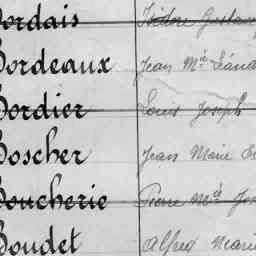 Bordais Isidore Gustav
Bordeaux Jean Mie Léand
Bordier Louis Joseph
Boscher Jean Marie
Boucherie Pierre Mie Jos
Boudet Alfred Marie